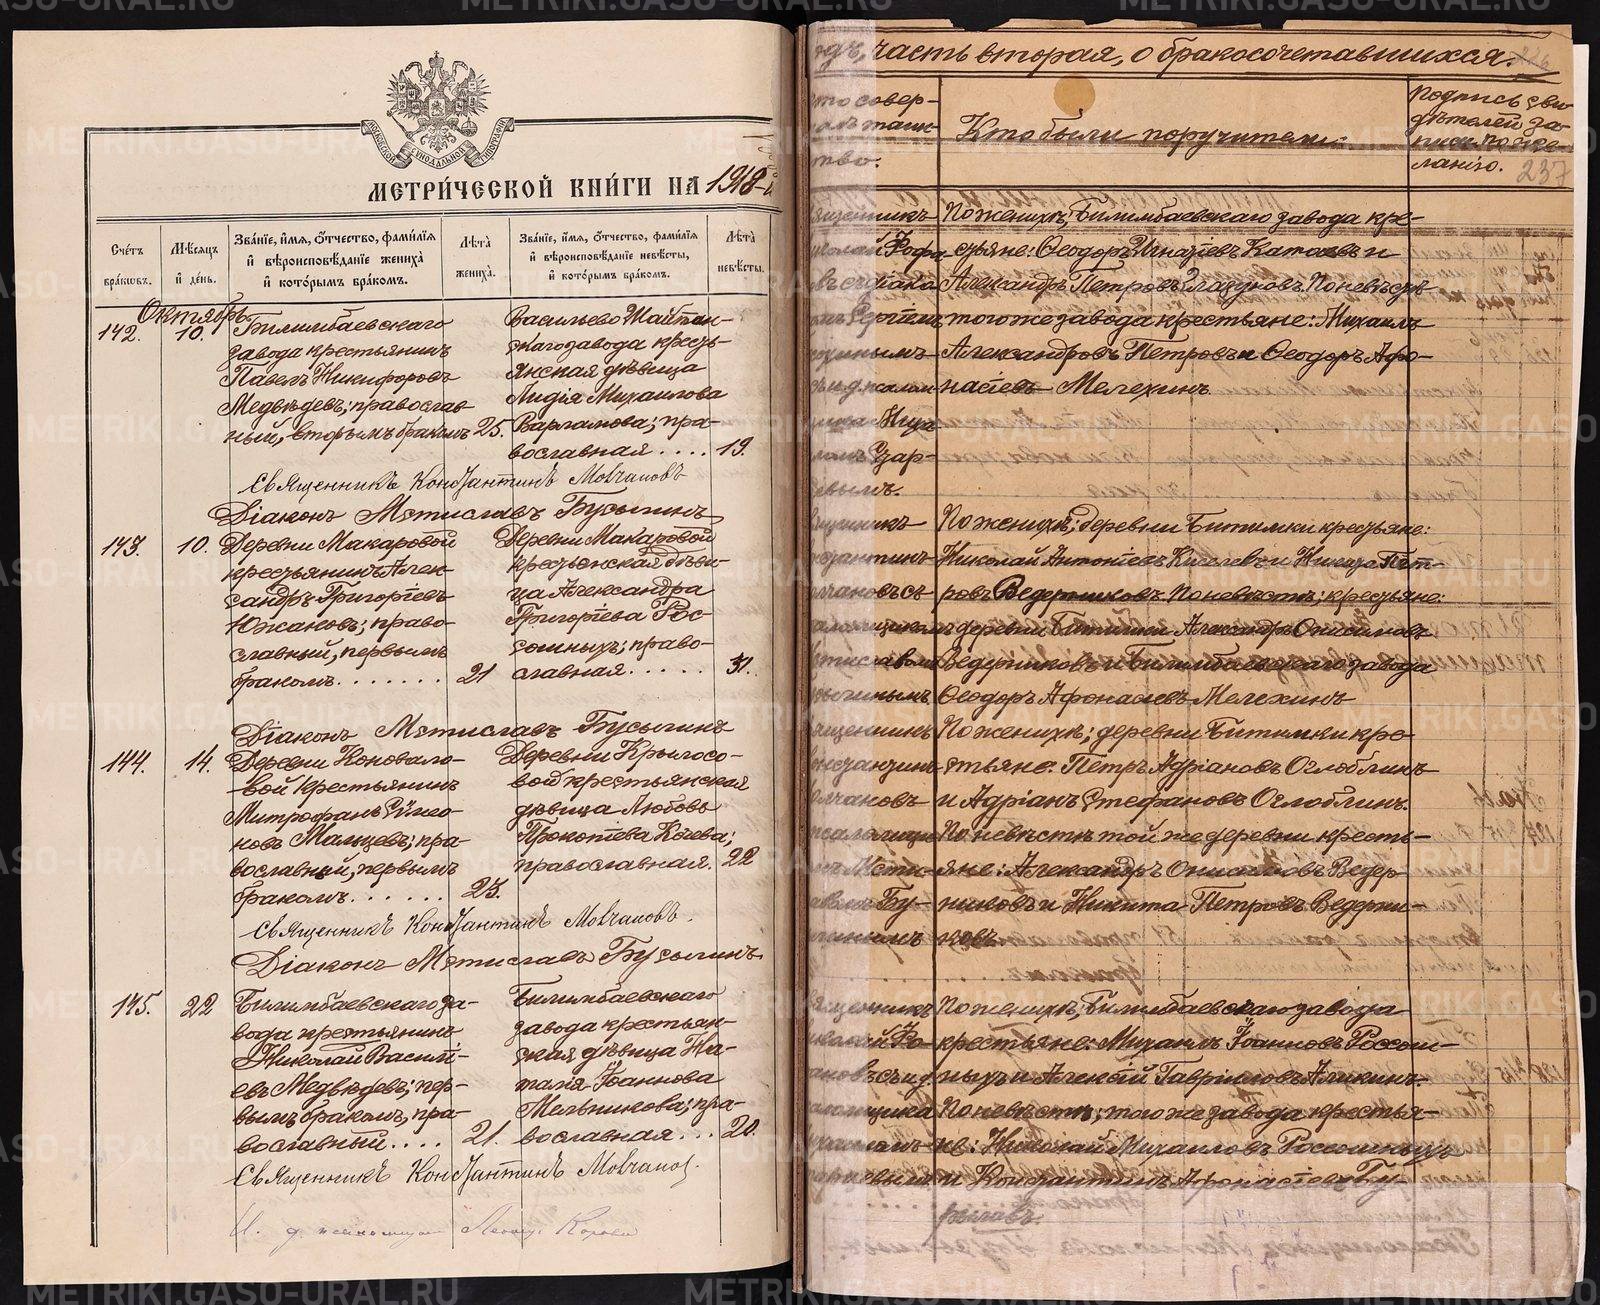 МОСКОВСКОЙ СѴНОДАЛЬНОЙ ТИПОГРАФІИ
МЕТРИ́ЧЕСКОЙ КНИ́ГИ НА 1918-й
Счетъ браковъ.
Мѣсяцъ и день.
Званіе, имя, отчество, фамилія и вѣроисповѣданіе жениха и которымъ бракомъ.
Лѣта жениха.
Званіе, имя, отчество, фамилія и вѣроисповѣданіе невѣсты, и которымъ бракомъ.
Лѣта невѣсты.
Октябрь
142. 10.
Билимбаевскаго
завода крестьянинъ
Павелъ Никифоровъ
Медвѣдевъ; православ-
ный, вторымъ бракомъ 25.
Васильево Шайтан-
скаго завода кресть-
янская дѣвица
Лидія Михаилова
Варламова; пра-
вославная.... 19.
Священникъ Константинъ Мовчановъ
Діаконъ Мстиславъ Бусыгинъ
143. 10.
Деревни Макаровой
крестьянинъ Алек-
сандръ Григоріевъ
Южаковъ; право-
славный, первымъ
бракомъ....... 21
Деревни Макаровой
крестьянская дѣви-
ца Александра
Григоріева Рос-
сошныхъ; право-
славная..... 31.
Діаконъ Мстиславъ Бусыгинъ
144. 14.
Деревни Коновало-
вой крестьянинъ
Митрофанъ Симео-
новъ Мальцевъ; пра-
вославный, первымъ
бракомъ...... 25.
Деревни Крылосо-
вой крестьянская
дѣвица Любовь
Прокопіева Коева;
православная. 22
Священникъ Константинъ Мовчановъ.
Діаконъ Мстиславъ Бусыгинъ.
145. 22
Билимбаевскаго за-
вода крестьянинъ
Николай Васілі-
евъ Медвѣдевъ; пер-
вымъ бракомъ, пра-
вославный.... 21.
Билимбаевскаго
завода крестьян-
ская дѣвица На-
талія Іоаннова
Мельникова; пра-
вославная... 20.
Священникъ Константинъ Мовчанов.
И. д. псаломщика
одъ, часть вторая, о бракосочетавшихся.
Кто были поручители.
Подпись сви-
дѣтелей за-
писи по же-
ланію.
237
По женихѣ; Билимбаевскаго завода кре-
стьяне: Ѳеодоръ Игнатіевъ Катаевъ и
Александръ Петровъ Глазуновъ. По невѣстѣ
того же завода крестьяне: Михаилъ
Александровъ Петровъ и Ѳеодоръ Афо-
насіевъ Мелехинъ.
По женихѣ; деревни Битимки крестьяне:
Николай Антоніевъ Киселевъ и Никита Пет-
ровъ Ведерниковъ. По невѣстѣ; крестьяне:
деревни Битимки Александръ Онисимовъ
Ведерниковъ и Билимбаевскаго завода
Ѳеодоръ Афонасіевъ Мелехинъ
По женихѣ; деревни Битимки кре-
стьяне: Петръ Адріановъ Оглоблинъ
и Адріанъ Стефановъ Оглоблинъ.
По невѣстѣ той же деревни кресть-
яне: Александръ Онисимовъ Ведер-
никовъ и Никита Петровъ Ведерни-
ковъ
По женихѣ; Билимбаевскаго завода
крестьяне: Михаилъ Іоанновъ Россош-
ныхъ и Алексій Гавріиловъ Аликинъ.
По невѣстѣ; того же завода крестья-
не: Николай Михаиловъ Россошныхъ
и Константинъ Афонасіевъ Бу-